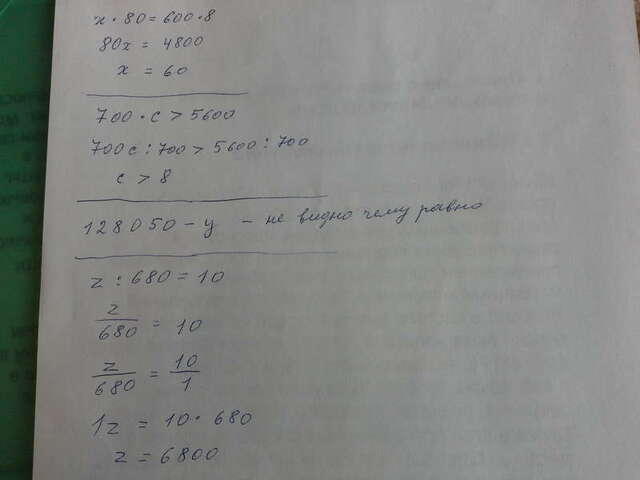 x · 80 = 600 · 8
80x = 4800
x = 60
700 · c > 5600
700c : 700 > 5600 : 700
c > 8
128050 - y - не видно чему равно
z : 680 = 10
z/680 = 10
z/680 = 10/1
1z = 10 · 680
z = 6800